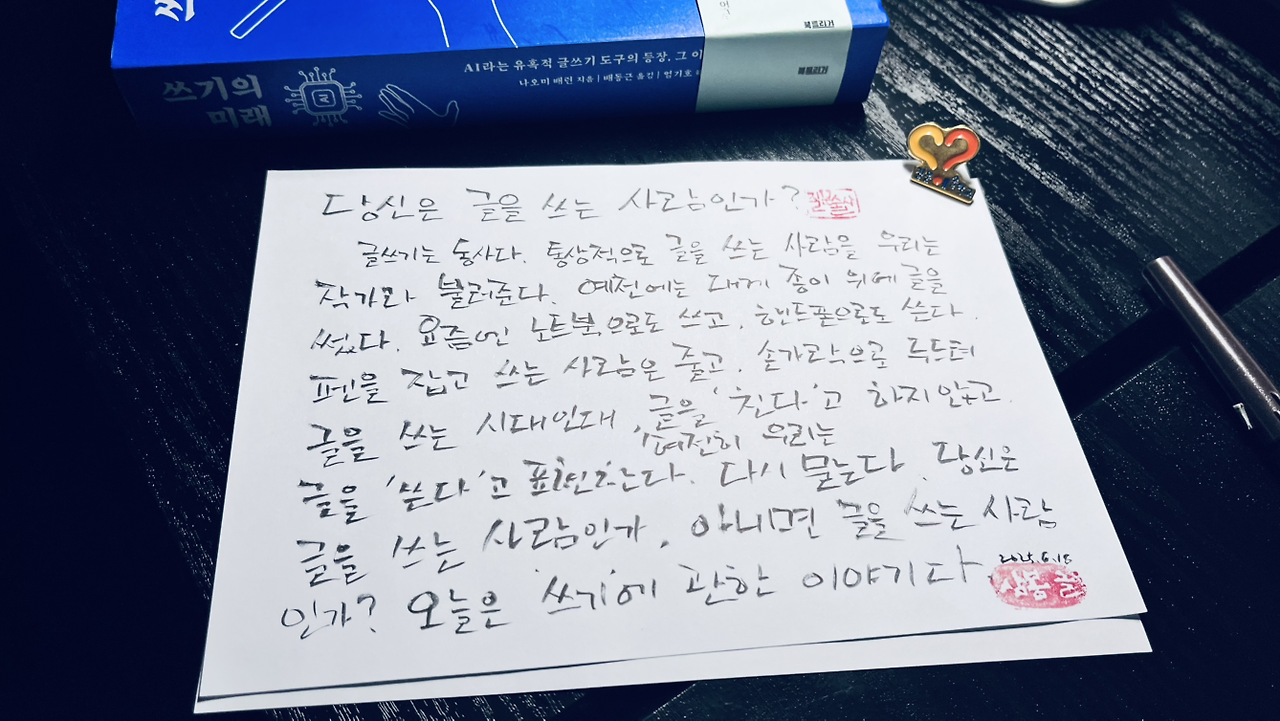 쓰기의
미래
AI라는 유혹적 글쓰기 도구의 등장, 그 이
나오미 배런 지음 | 배동근 옮김 | 엄기호
북트리거
북트리거
당신은 글을 쓰는 사람인가?
글쓰기는 동사다. 통상적으로 글을 쓰는 사람을 우리는
작가라 불러준다. 예전에는 대게 종이 위에 글을
썼다. 요즘엔 노트북으로도 쓰고, 핸드폰으로도 쓴다.
펜을 잡고 쓰는 사람은 줄고, 손가락으로 두드려
글을 쓰는 시대인대, 글을 '친다'고 하지않고.
여전히 우리는
글을 '쓴다'고 표현하는다. 다시 묻는다. 당신은
글을 쓰는 사람인가, 아니면 글을 쓰는 사람
인가? 오늘은 '쓰기'에 관한 이야기다.
2025.6.18